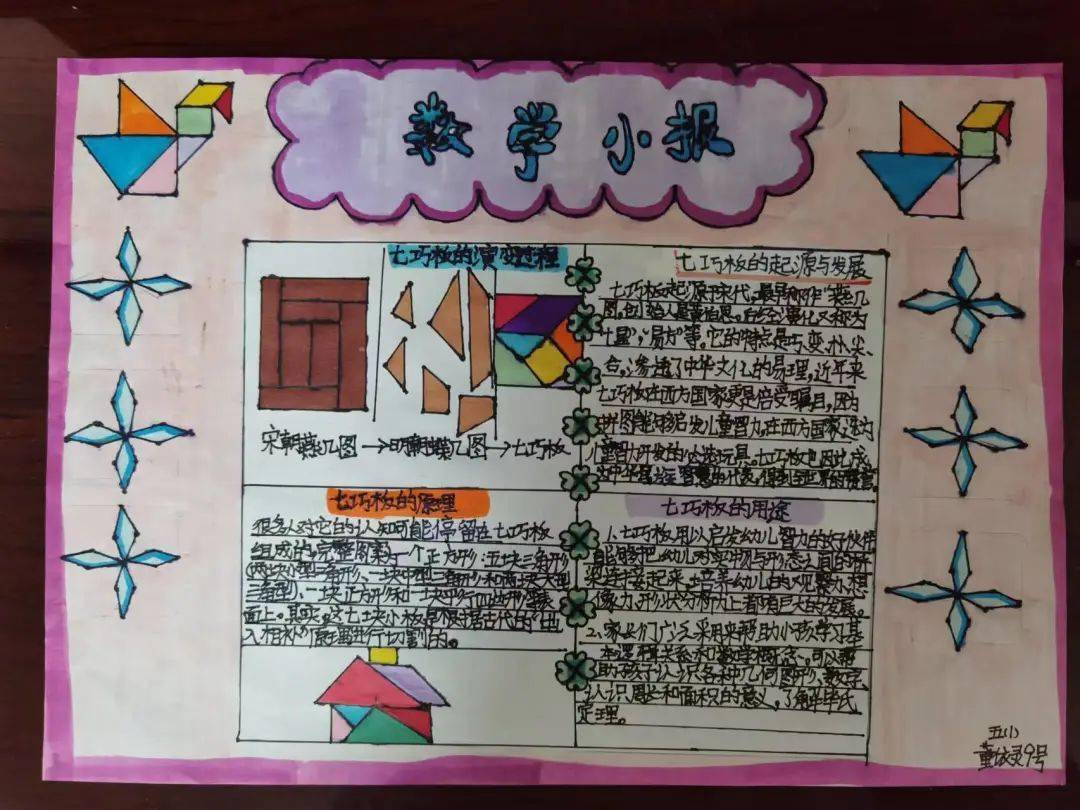 数学小报
七巧板的演变过程
宋朝燕几图→明朝蝶几图→七巧板
七巧板的起源与发展
七巧板起源于宋代,最早称作"燕几
图。创始人是黄伯思。
"七星","质方"等。它的特点是巧、变、朴、尖、
合。渗透了中华文化的易理,近年来
七巧板在西方国家更是倍受瞩目,因为
拼图能够启发儿童智力,在西方国家
儿童智力开发的必选玩具,七巧板也因此成
七巧板的原理
很多人对它的认知可能停留在七巧板
组成的完整图案一个正方形:五块三角形
(两块小型三角形、一块中型三角形和两块大型
三角型)、一块正方形和一块平行四边形
面上。其实,这七块小板是根据古代的"出
入相补"原理进行切割的。
七巧板的用途
1.七巧板用以启发幼儿智力的好伙伴
能够把幼儿对实物与形态之间的桥
梁连接起来,培养幼儿的观察力、想
像力,形状分析上都有巨大的发展。
2、家长们广泛采用来帮助小孩学习基
本逻辑关系和数学概念。可以帮
助孩子认识各种几何图形、数字、
认识周长和面积的意义,了解毕氏
定理。
五(1)
9号